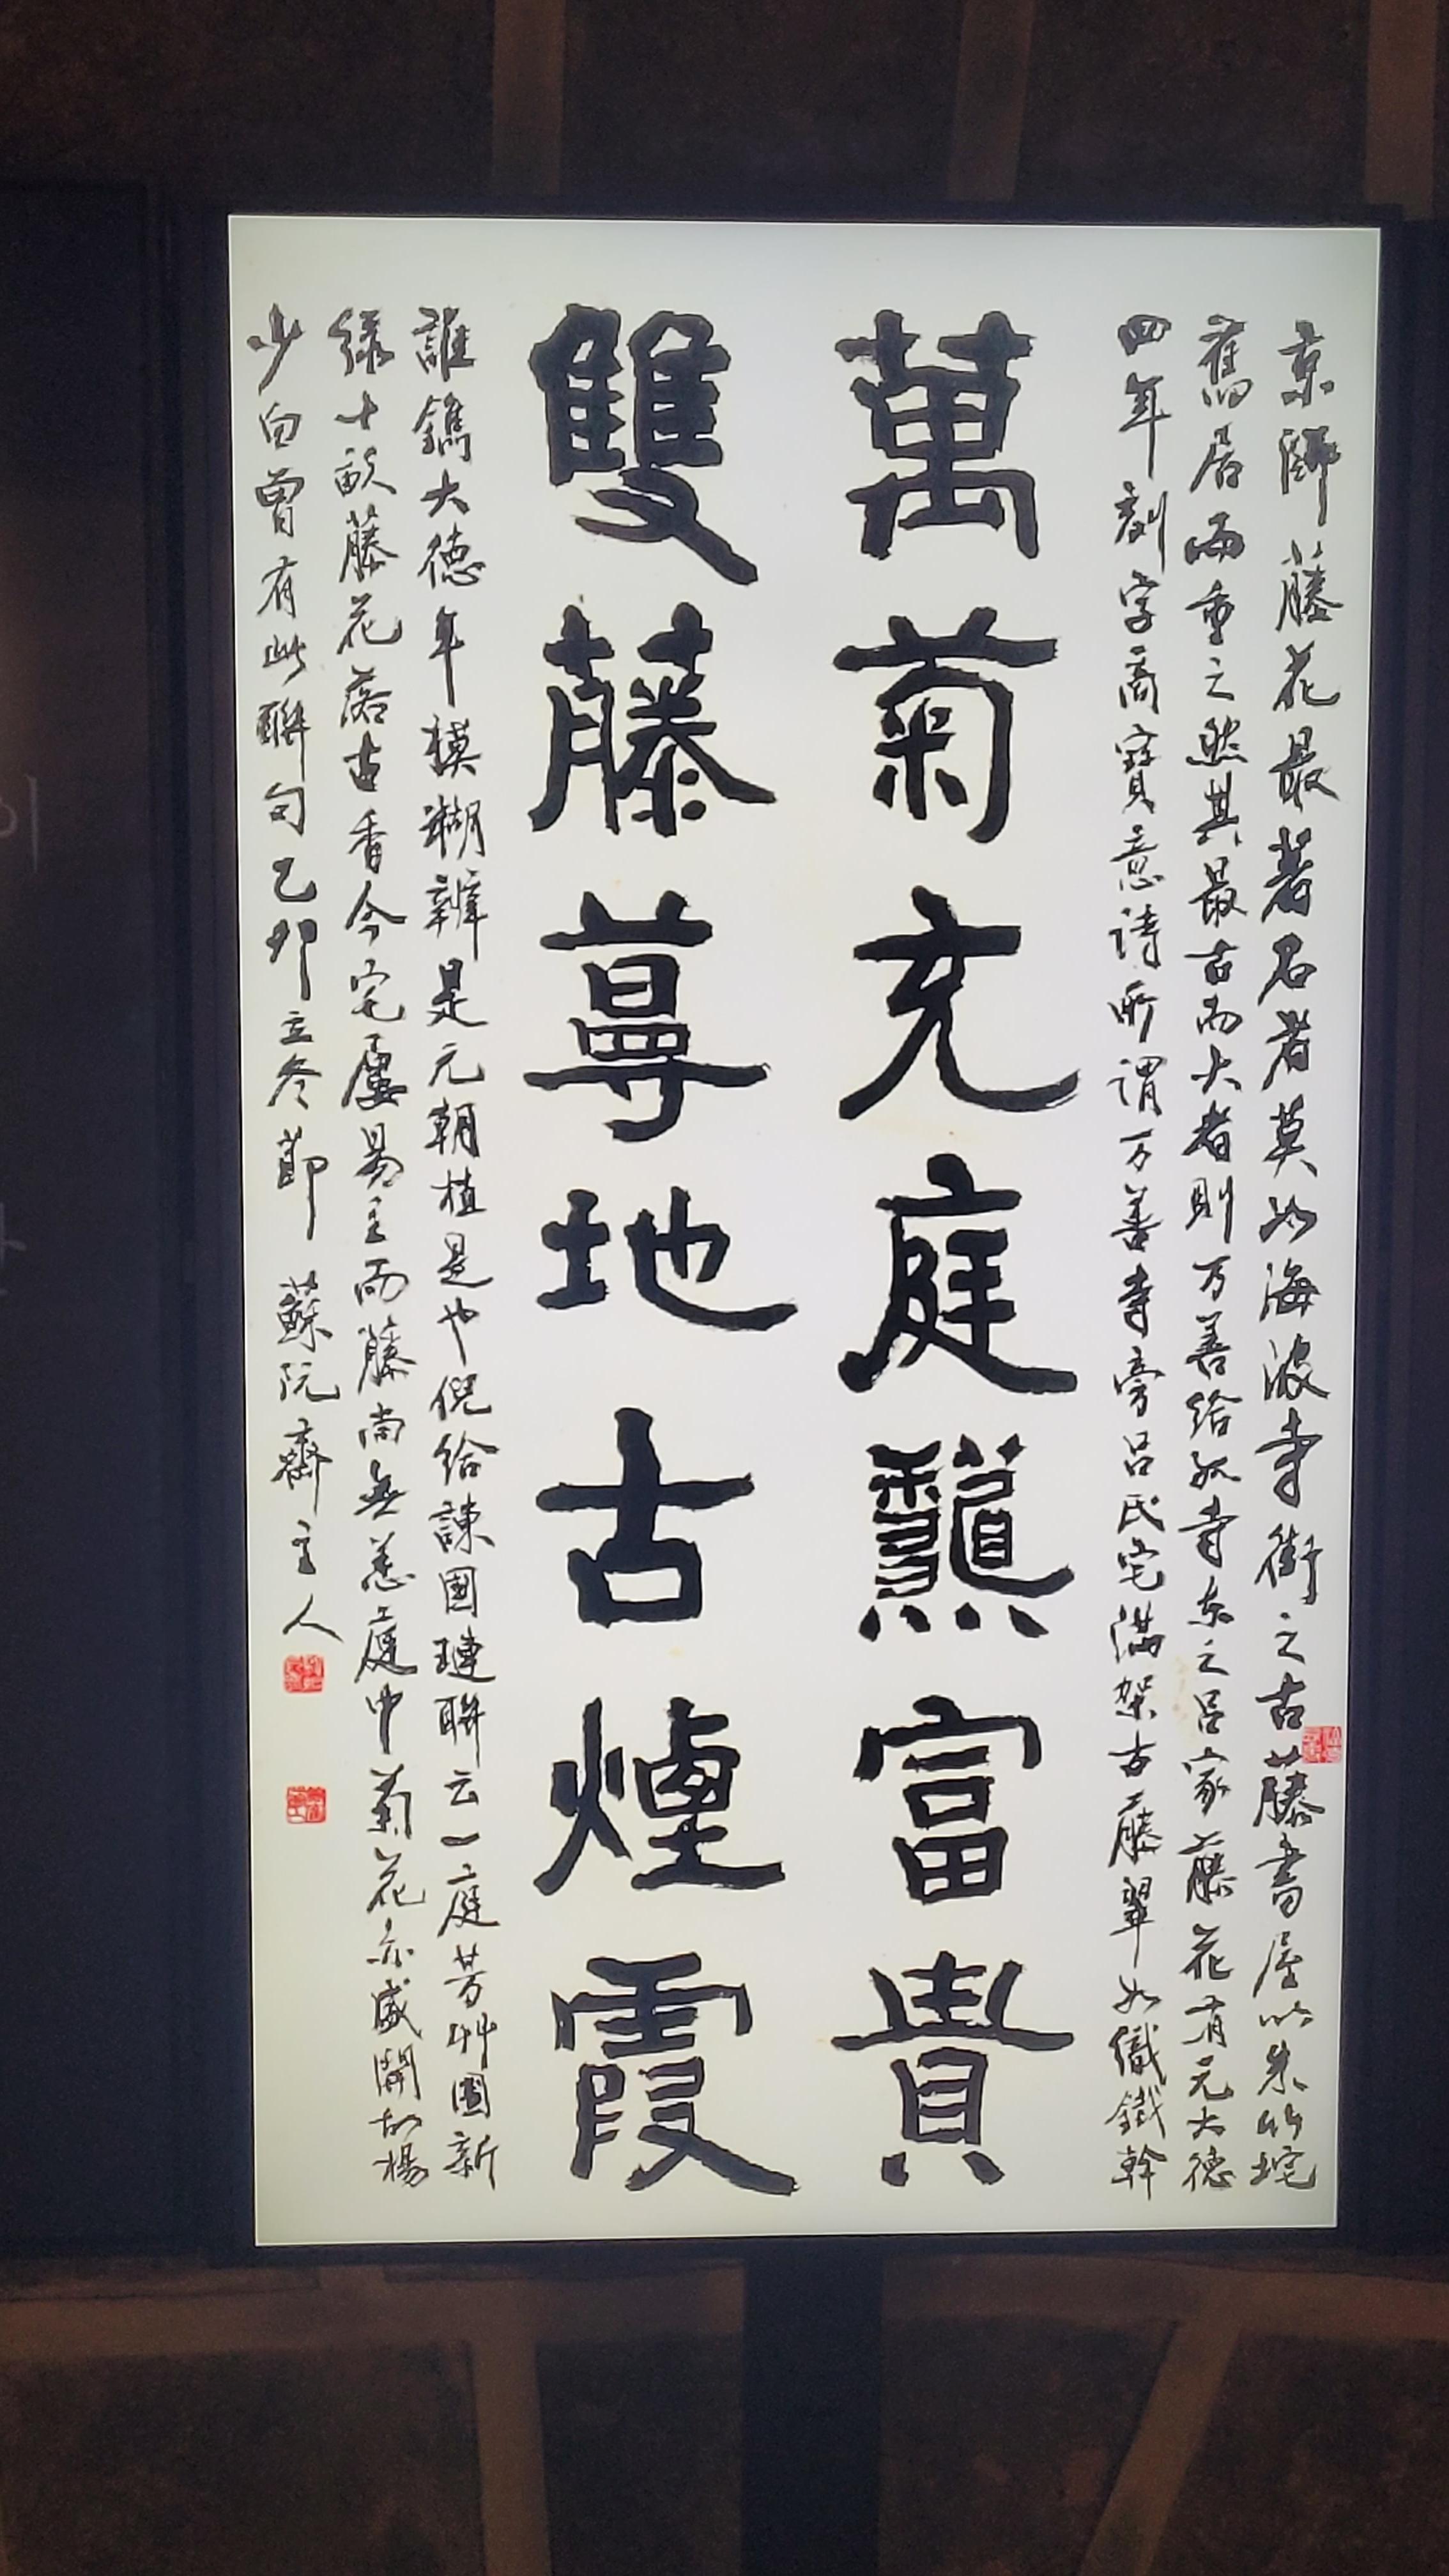 京師藤花最著名者莫如海波寺街之古藤書屋以朱竹垞
舊居而重之然其最古而大者則万善给孤寺东之吕家藤花有元大德
四年刻字商寶意詩所謂万善寺旁呂氏宅滿架古藤翠如織鐵幹
萬菊充庭龘富貴
雙藤蕚地古煙霞
誰鐫大德年模糊辨是元朝植是也倪给諫國璉聯云一庭芳艸圍新
綠十畝藤花落古香今宅屢易主而藤尚無恙庭中菊花亦盛開故楊
少白曾有此聯句乙卯立冬節 蘇阮齋主人